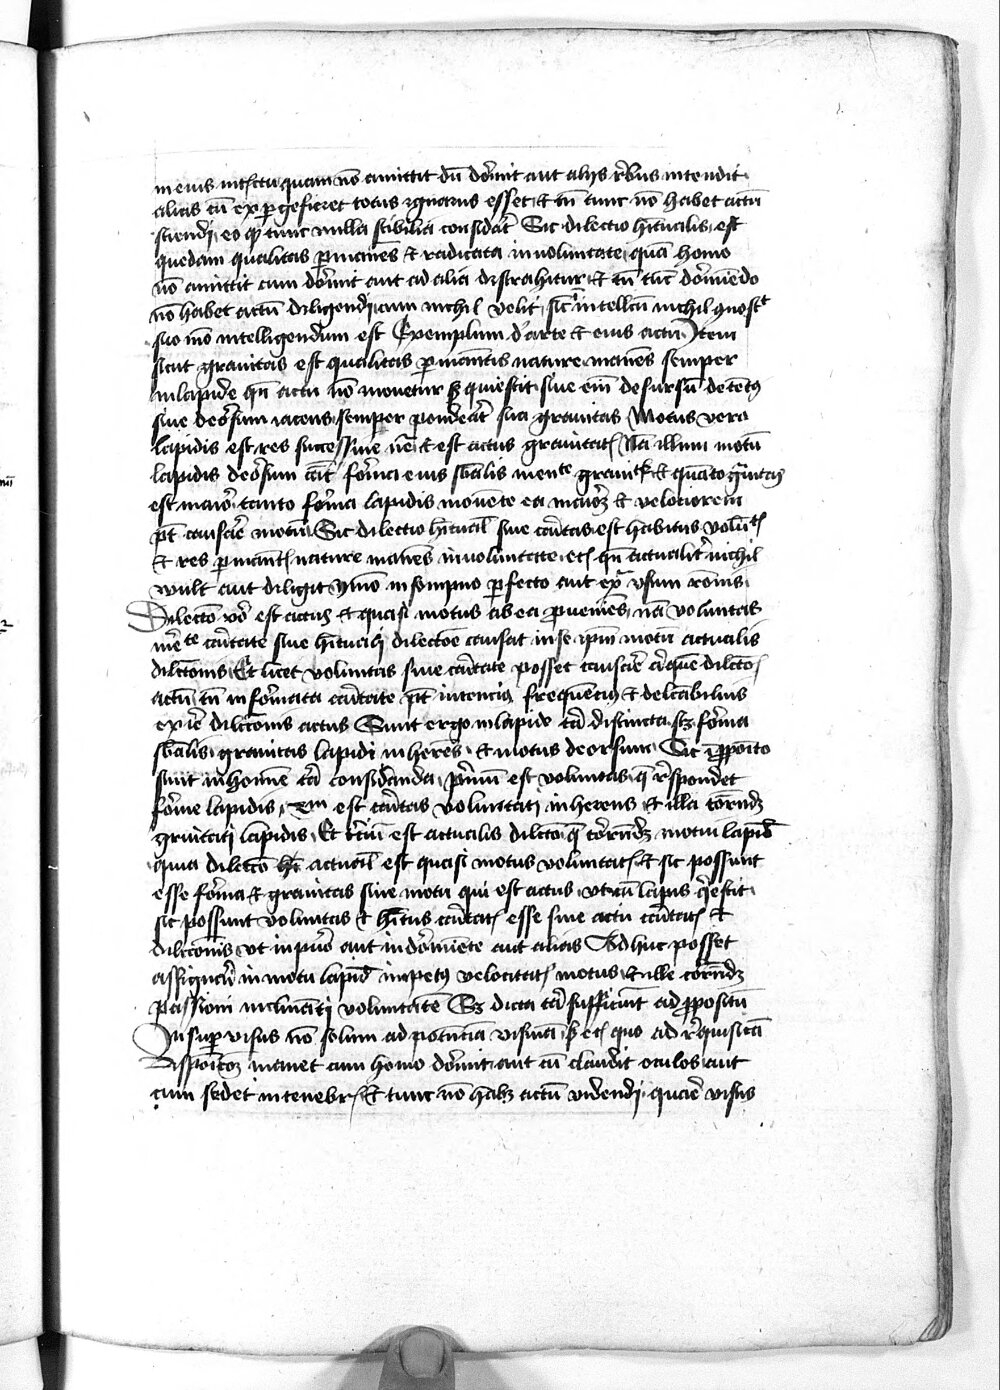 in eius intellectu quam nō amittit dū dormit aut alijs rebus intendit
alias cū expergefieret totus ignarus esset et tn̄ tunc nō habet actū
sciendi eo qꝫ tunc nulla scibilia considerat Sic dilectio hitualis est
quedam qualitas permanens et radicata in voluntate quā homo
nō amittit cum dormit aut ad alia distrahitur et tn̄ tūc dormiendo
nō habet actū diligendi cum nichil velit sicut intellectū nichil
suo mō intelligendum est Exemplum de arte et eius actu Item
sicut grauitas est qualitas permanentis nature manēs semper
in lapide qn̄ actu nō mouetur sꝫ quiescit siue eī desursū detentus
siue deorsum iacens semper ponderat sua grauitas Motus vero
lapidis est res successiue nature et est actus grauitatis Nā illum motū
lapidis deorsum causat forma eius substancialis mediante grauitate et quāto grauitas
est maior tanto forma lapidis mouente ea maiorē et velociorem
pt̄ causare motū Sic dilectio hitualis siue caritas est habitus voluntatis
et res permanentis nature manēs in voluntate etc qn̄ actualiter nichil
wult aut diligit ymo in sompno perfecto aut extra vsum rōnis
Dilectō vero est actus et quasi motus ab ea proueniēs nā voluntas
mediante caritate siue hituali dilectōe causat in se ipsam motū actualis
dilectōnis Et licet voluntas sine caritate posset causare dilectōis
actū tn̄ informata caritate pt̄ intencius frequencius et delectabilius
exire dilectōnis actus Sunt ergo in lapide tria distincta scꝫ forma
substancialis grauitas lapidi inherēs et motus deorsum Sic in proposito
sunt in homine tria consideranda primū est voluntas que respondet
forme lapidis 2m est caritas voluntati inherens et illa correspondet
grauitati lapidis Et terciū est actualis dilectō que correspondet motui lapidis
quia dilectō hec actualis est quasi motus voluntatis et sic possunt
esse forma et grauitas sine motu qui est actus vt cū lapis quiescit
sic possunt voluntas et habitus caritatis esse sine actu caritatis et
dilectōnis vt in puero aut in dormiente aut alias Adhuc posset
assignari in motu lapidis impetus velocitatis motus et ille correspondet
passioni inclinanti voluntatē Sꝫ dicta tria sufficiunt ad propositū
Insuper visus nō solum ad potenciā visiuā sꝫ etc quo ad requisitā
disposicōem manet cum homo dormit aut cū claudit oculos aut
cum sedet in tenebris et tunc nō habet actū videndi quare visus